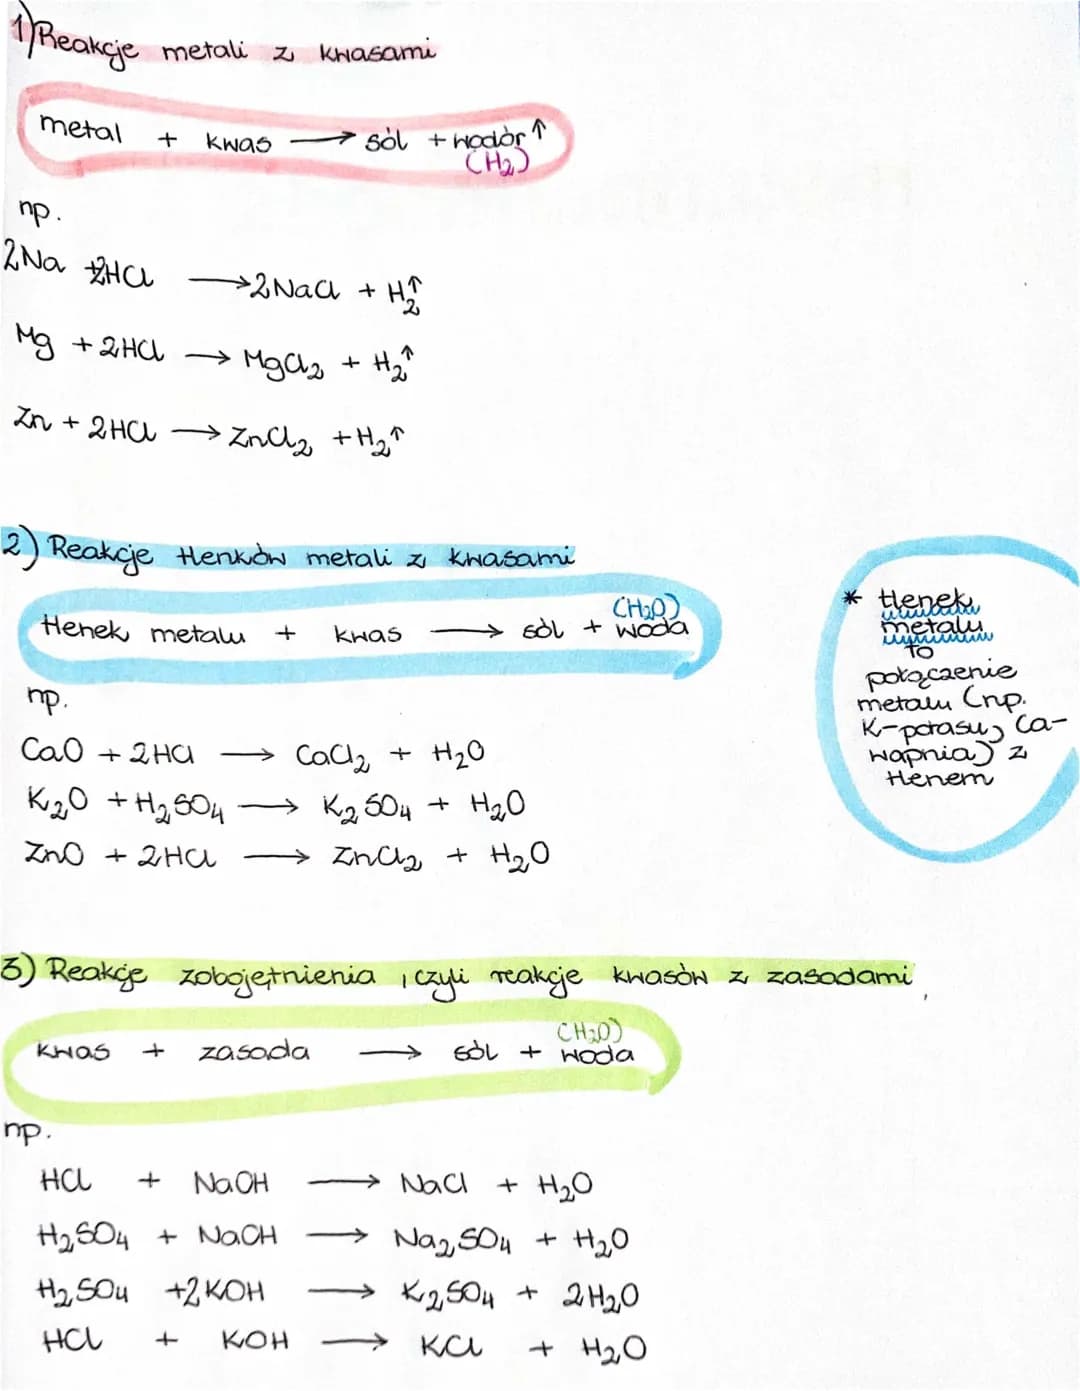 1) Reakcje metali z kwasami
metal + kwas → sól + wodór ↑
(H₂)
np.
2Na +2HCl → 2NaCl + H₂↑
Mg + 2HCl → MgCl₂ + H₂↑
Zn + 2HCl → ZnCl₂ + H₂↑
2) Reakcje tlenków metali z kwasami
(H₂O)
tlenek metalu + kwas → sól + woda
np.
CaO + 2HCl → CaCl₂ + H₂O
K₂O + H₂SO₄ → K₂SO₄ + H₂O
ZnO + 2HCl → ZnCl₂ + H₂O
* tlenek
metalu
to
połączenie
metalu (np.
K-potasu, Ca-
wapnia) z
tlenem
3) Reakcje zobojętnienia, czyli reakcje kwasów z zasadami,
(H₂O)
kwas + zasada → sól + woda
np.
HCl + NaOH → NaCl + H₂O
H₂SO₄ + NaOH → Na₂SO₄ + H₂O
H₂SO₄ +2KOH → K₂SO₄ + 2H₂O
HCl + KOH → KCl + H₂O